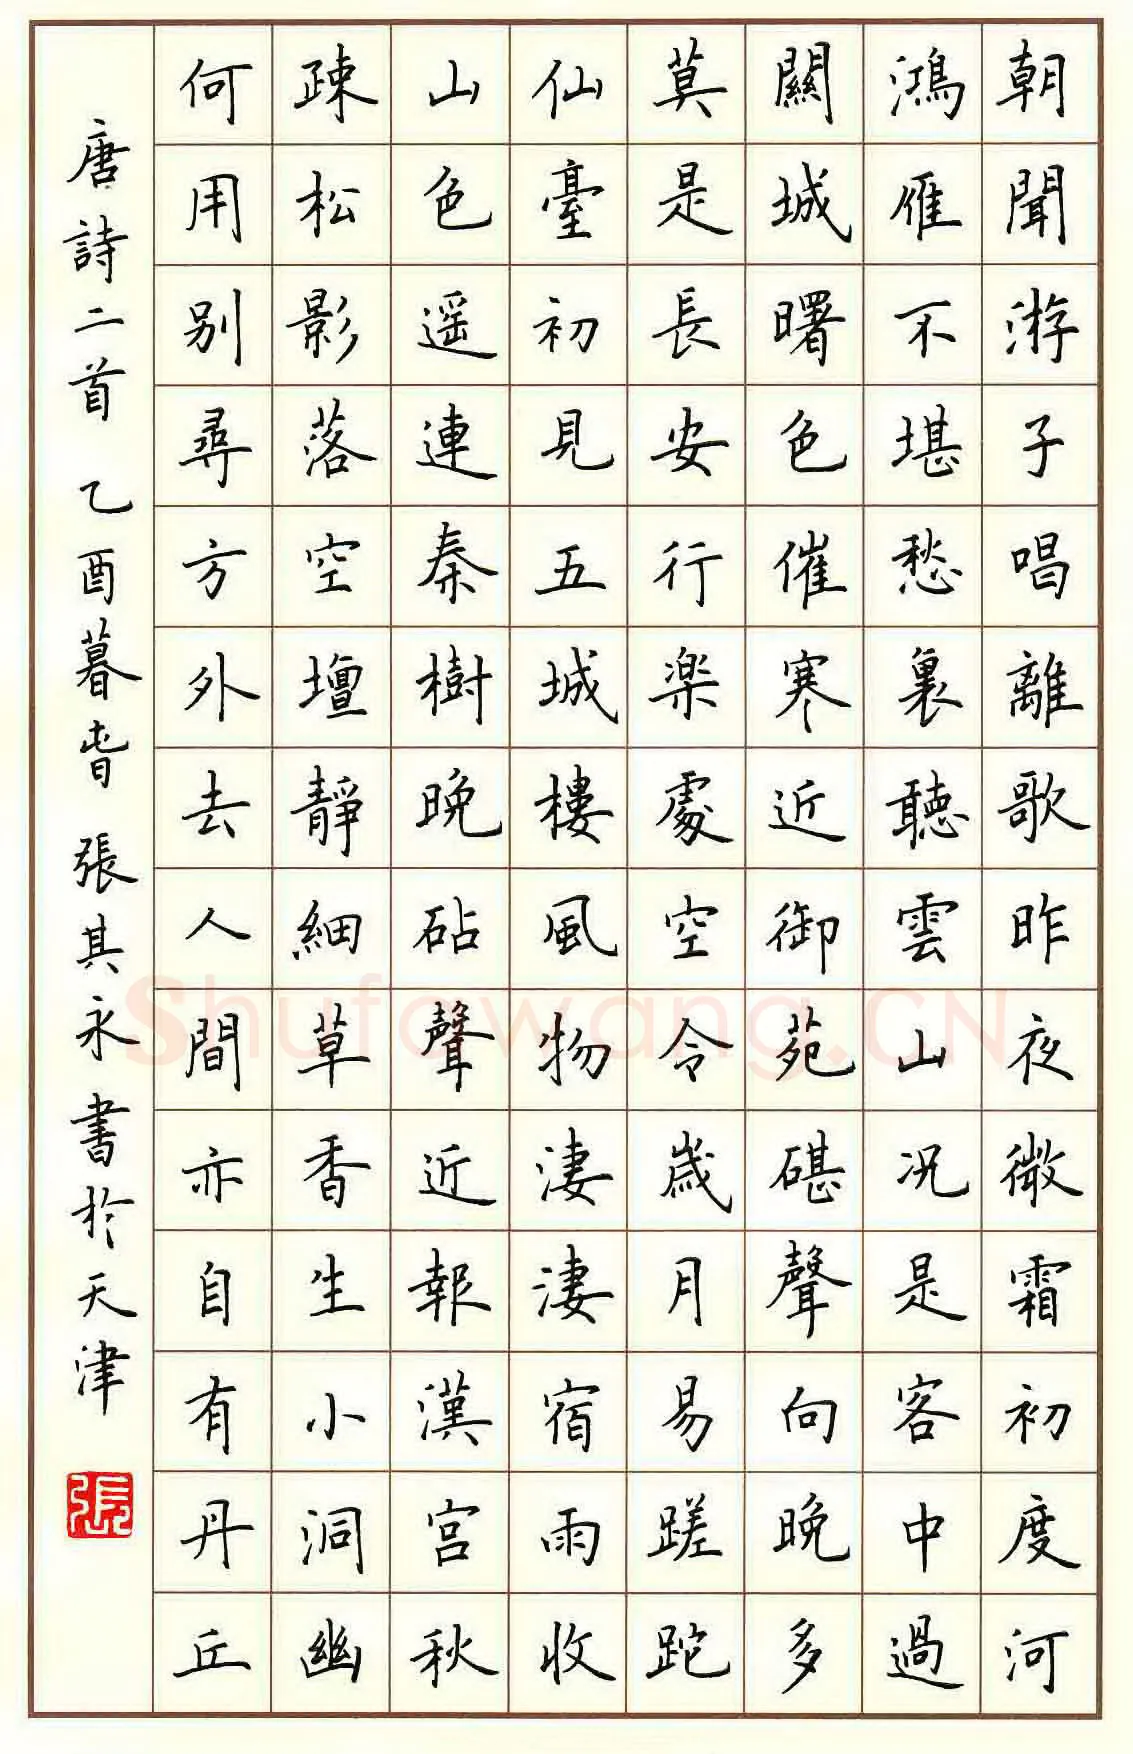 朝聞游子唱離歌昨夜微霜初度河
鴻雁不堪愁裏聽雲山况是客中過
關城曙色催寒近御苑碪聲向晚多
莫是長安行楽處空令歲月易蹉跎
仙臺初見五城樓風物淒淒宿雨收
山色遥連秦樹晚砧聲近報漢宮秋
疎松影落空壇靜細草香生小洞幽
何用别尋方外去人間亦自有丹丘
唐詩二首 乙酉暮旾 張其永書於天津
張
Shufawang.CN